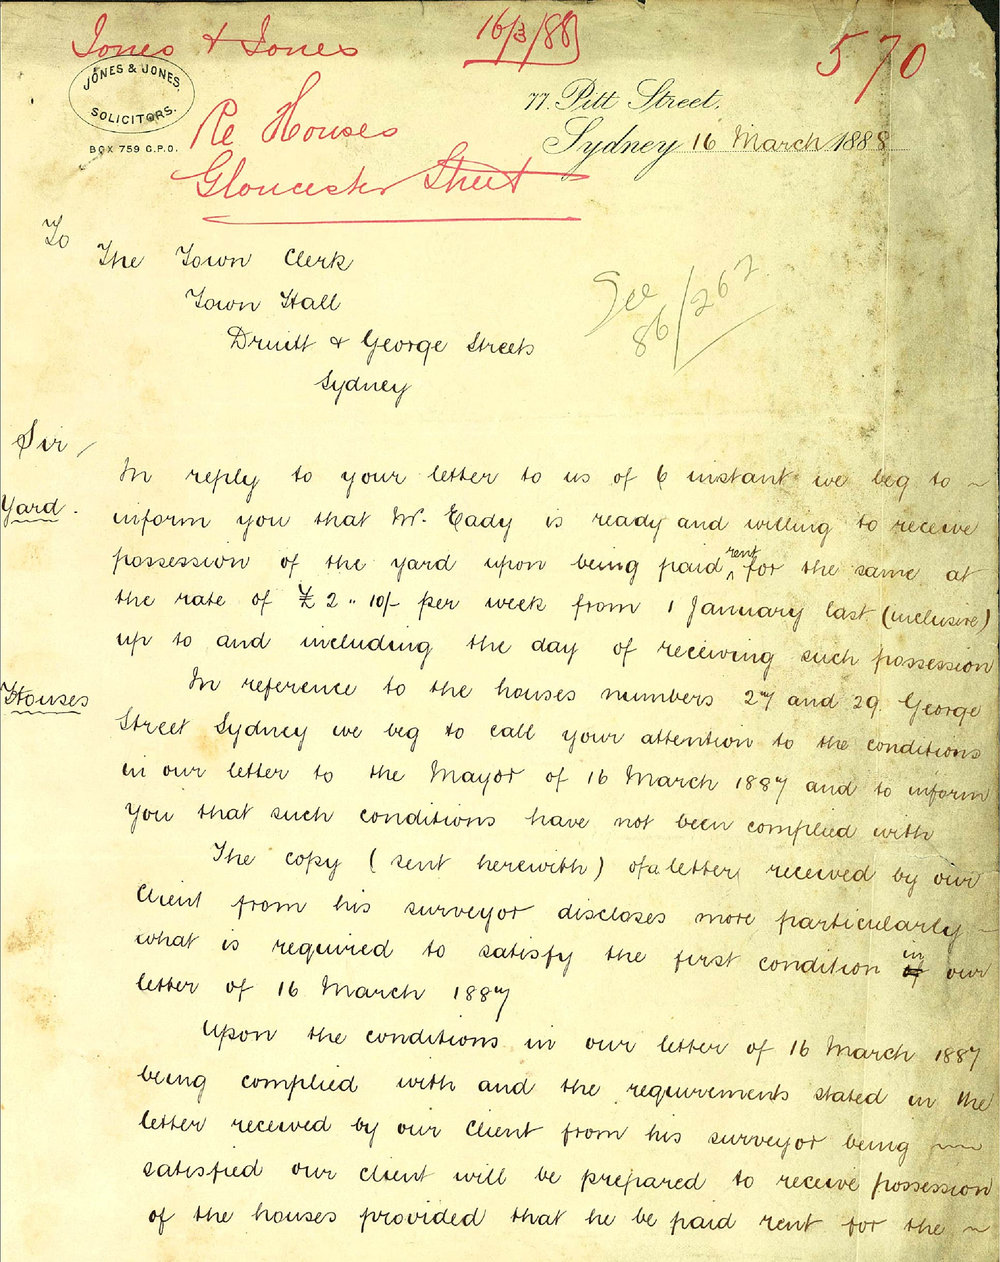 Jones & Jones
16/3/88
570
JONES & JONES,
SOLICITORS.
BOX 759 G.P.O.
Re Houses
Gloucester Street
77. Pitt Street,
Sydney 16 March 1888
To
The Town Clerk
Town Hall
Druitt & George Streets
Sydney
See
86/262
Sir,
In reply to your letter to us of 6 instant we beg to ~
Yard.
inform you that Mr. Eady is ready and willing to receive
possession of the yard upon being paid rent for the same at
the rate of £2 " 10/- per week from 1 January last (inclusive)
up to and including the day of receiving such possession
Houses
In reference to the houses numbers 27 and 29 George
Street Sydney we beg to call your attention to the conditions
in our letter to the Mayor of 16 March 1887 and to inform
you that such conditions have not been complied with
The copy (sent herewith) of a letter received by our
client from his surveyor discloses more particularly ~
what is required to satisfy the first condition of in our
letter of 16 March 1887
Upon the conditions in our letter of 16 March 1887
being complied with and the requirements stated in the
letter received by our client from his surveyor being ~
satisfied our client will be prepared to receive possession
of the houses provided that he be paid rent for the ~